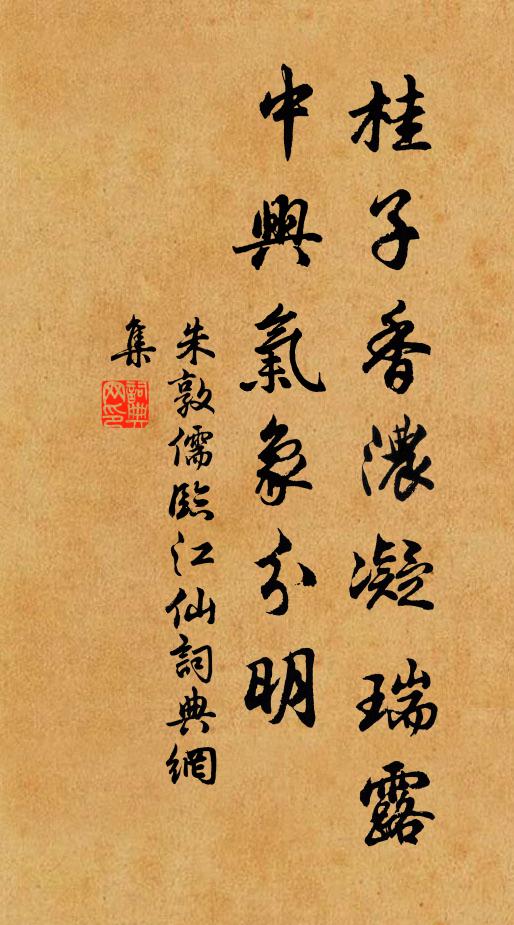 桂子香濃凝瑞露
中興氣象分明
朱敦儒臨江仙詞典網
集
詞典
網印